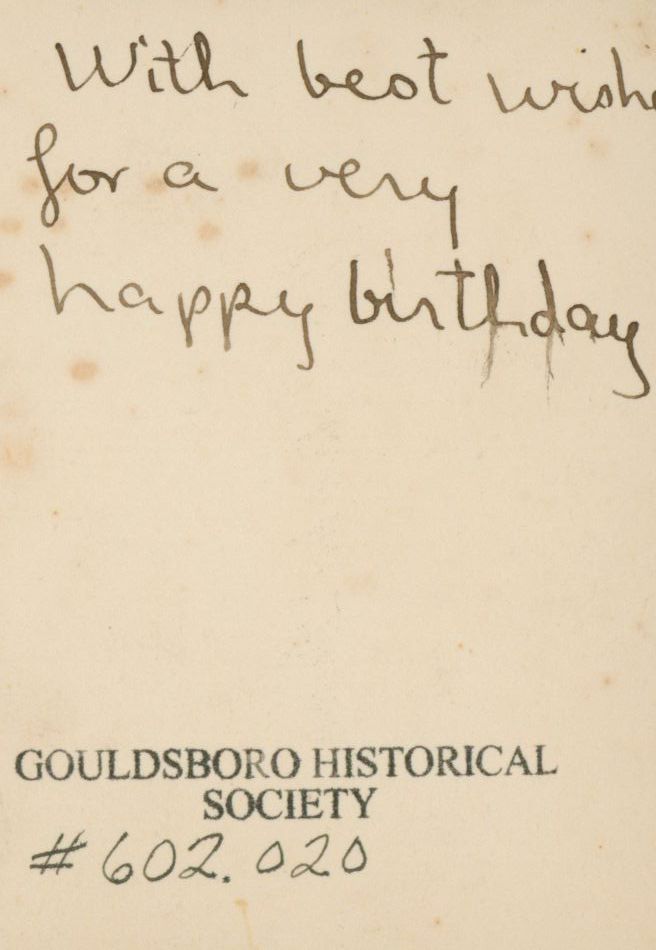 With best wishe
for a very
happy birthday
GOULDSBORO HISTORICAL
SOCIETY
#602.020